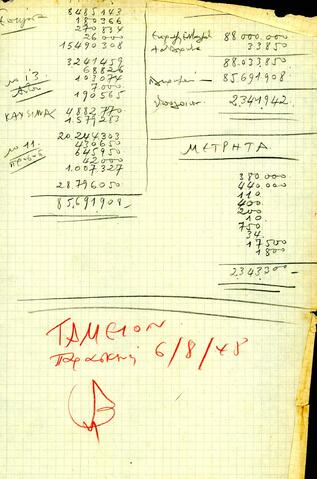 8485143
180366
270834
26000
15490308
3241459
68826
103074
7000
190565
ΚΑΥΣΙΜΑΣ 4882770
1579283
20.244303
430650
645950
42000
1.007327
28.796050
85,691908-
88 000.000
33850
88.033.850
85.691908
2.341.942
ΜΕΤΡΗΤΑ
380 000
440.000
110
400
200
10
750
34
17500
1800
2.343.300-
ΤΑΜΕΙΟΝ
Παρασκευή 6/8/48